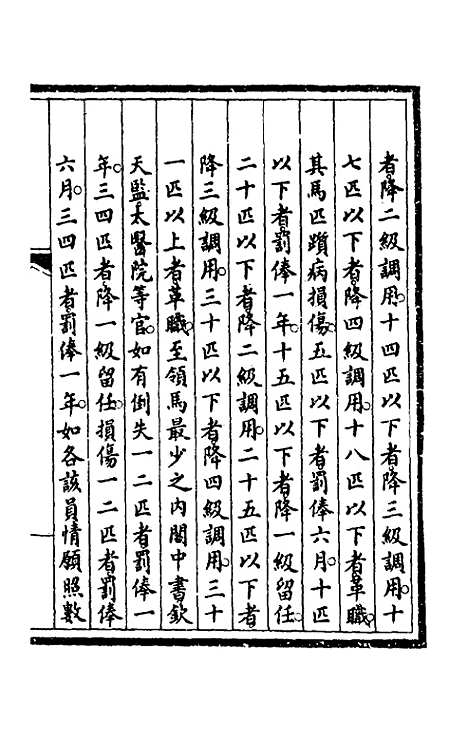 者降二級調用。十四匹以下者降三級調用。十
七匹以下者降四級調用。十八匹以下者革職。
其馬匹躓病損傷。五匹以下者罰俸六月。十匹
以下者罰俸一年。十五匹以下者降一級留任。
二十匹以下者降二級調用。二十五匹以下者
降三級調用。三十匹以下者降四級調用。三十
一匹以上者革職。至領馬最少之內閣中書欽
天監太醫院等官。如有倒失一二匹者罰俸一
年。三四匹者降一級留任。損傷一二匹者罰俸
六月。三四匹者罰俸一年。如各該員情願照數